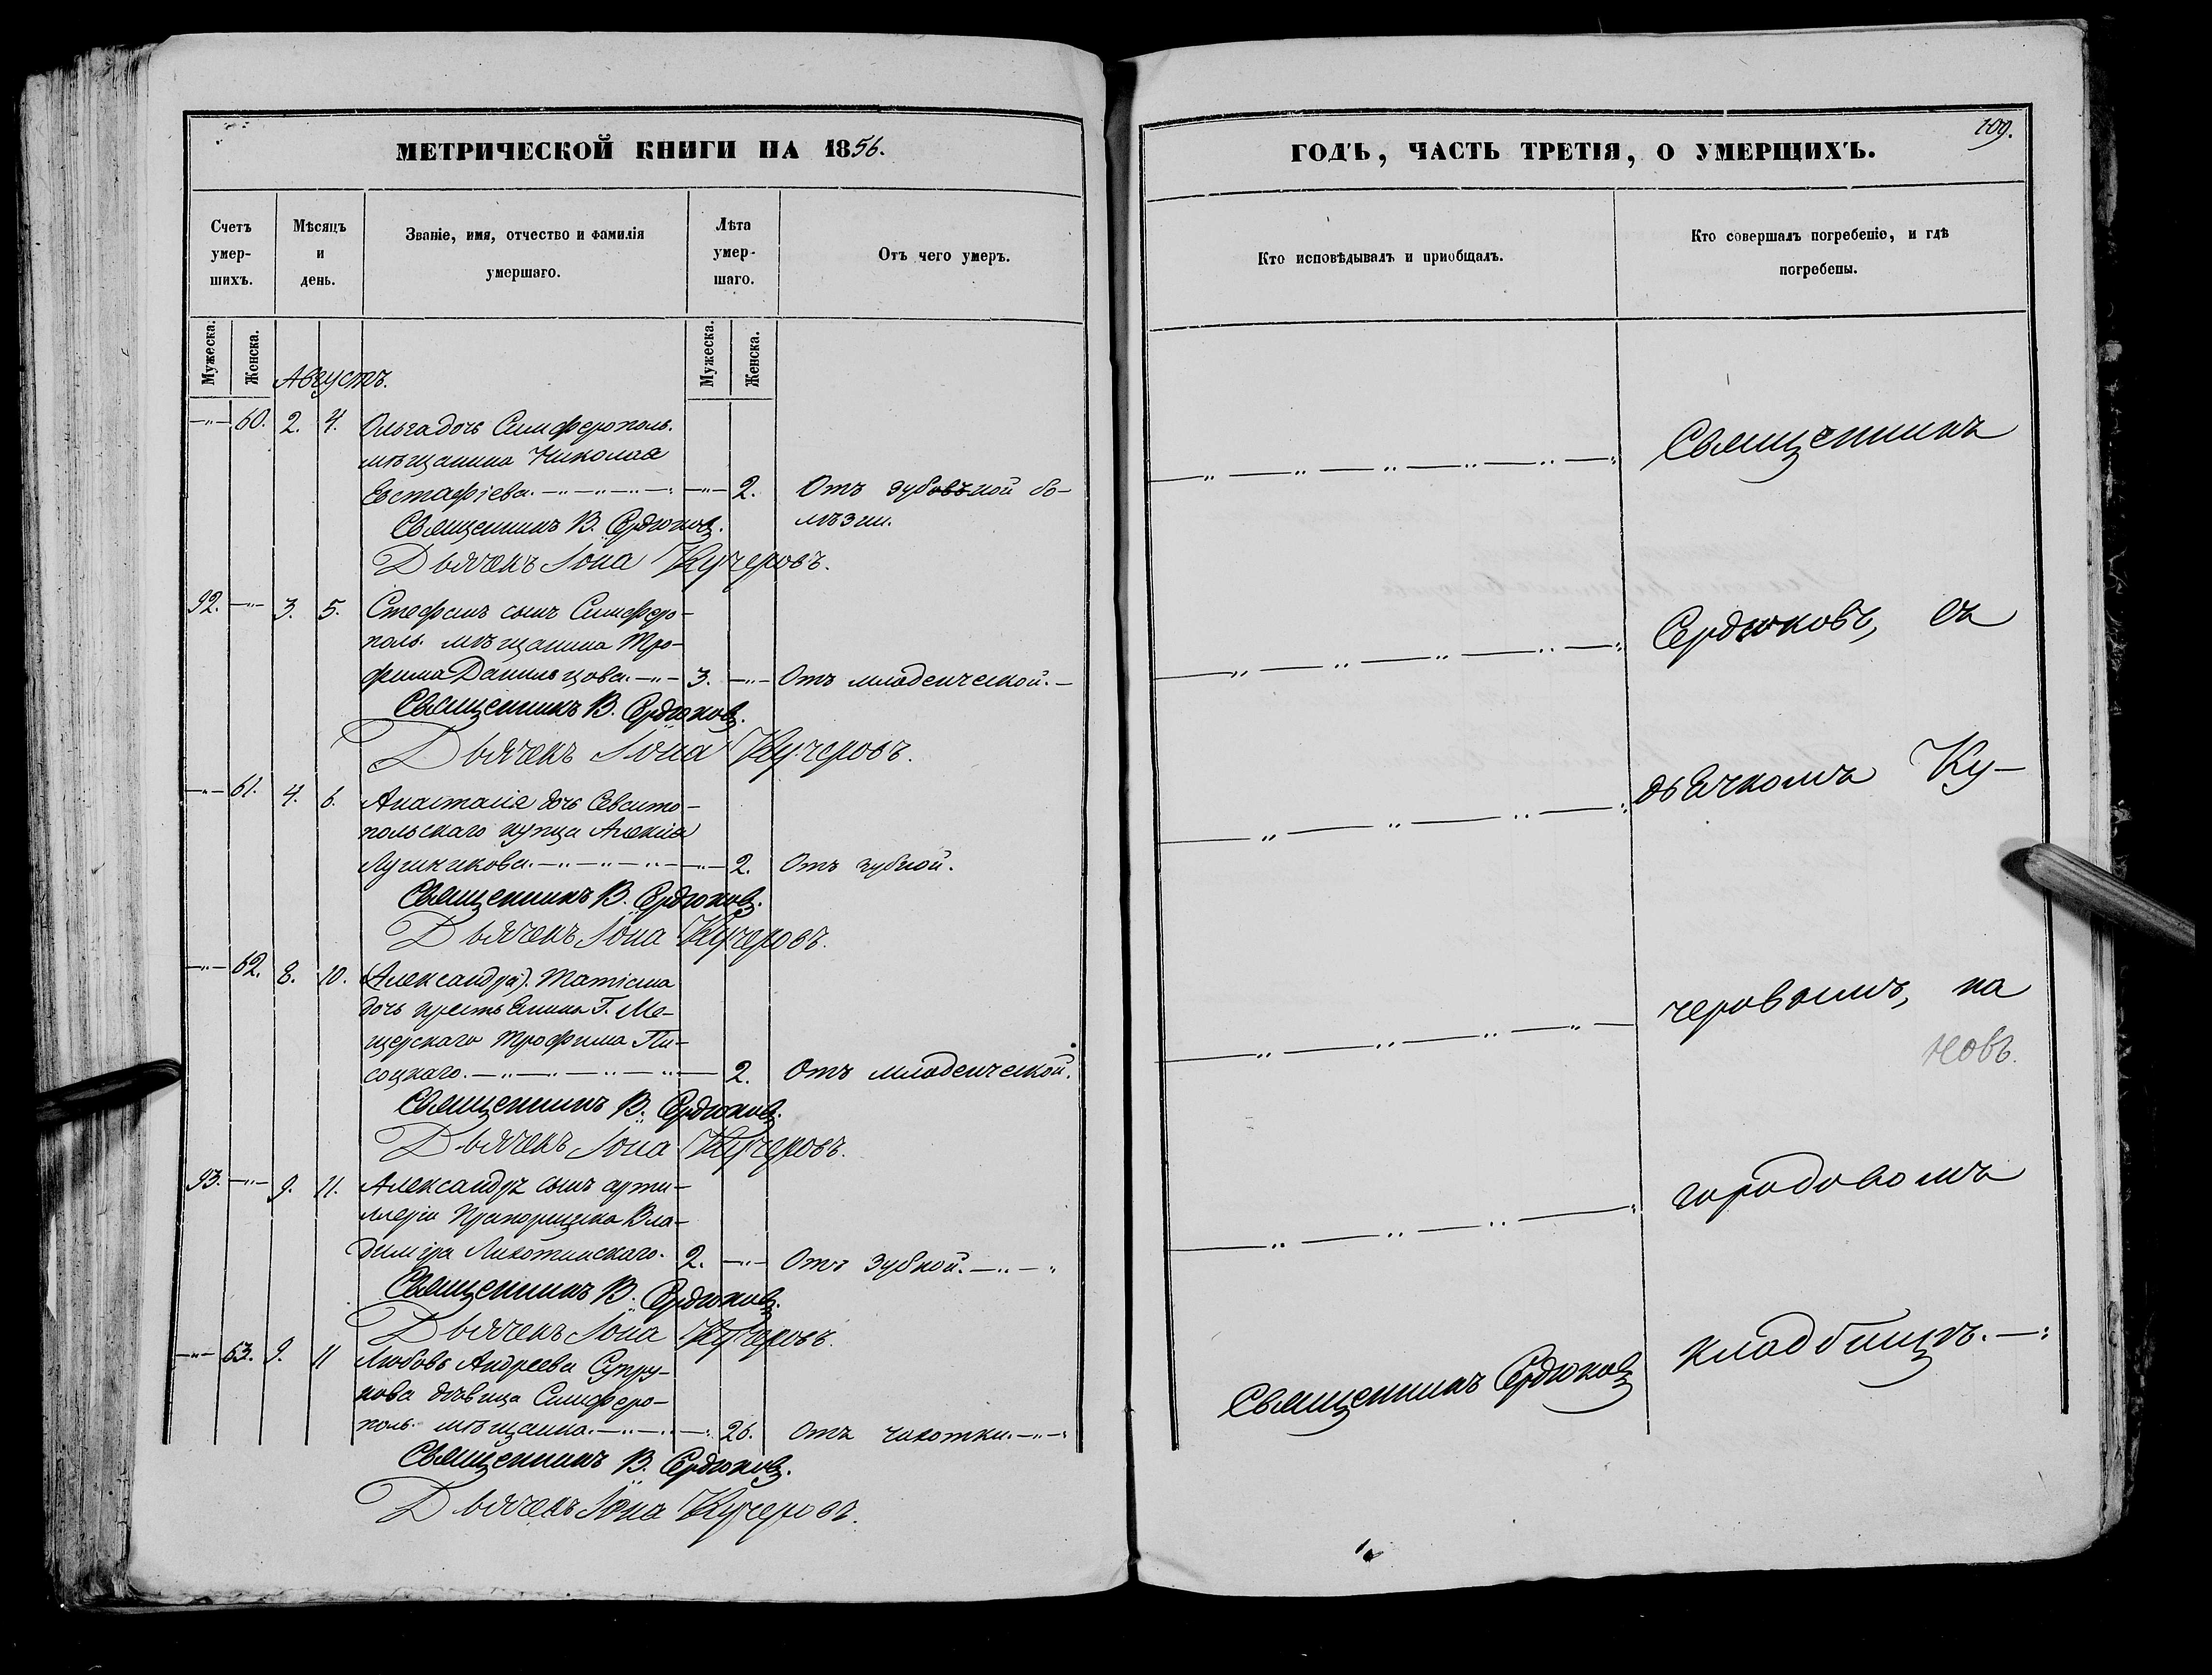 МЕТРИЧЕСКОЙ КНИГИ НА 1856.
Счетъ умер- шихъ.
Мѣсяцъ и день.
Званіе, имя, отчество и фамилія умершаго.
Лѣта умер- шаго.
Отъ чего умеръ.
Мужеска. Женска. Мужеска. Женска.
Августъ.
—"— 60. 2. 4. Ольга дочь Симферополь.
мѣщанина Николая
Евстафіева. —"— 2. Отъ зубовъной бо-
Священникъ В. Сердюковъ. лѣзни.
Дьячекъ Іона Кучеровъ.
92. —"— 3. 5. Стефанъ сынъ Симферо-
поль. мѣщанина Тро-
фима Данильцова. —"— 3. —"— Отъ младенческой. —
Священникъ В. Сердюковъ.
Дьячекъ Іона Кучеровъ.
—"— 61. 4. 6. Анастасія дочь Севасто-
польскаго купца Алексія
Лушникова. —"— 2. Отъ зубной.
Священникъ В. Сердюковъ.
Дьячекъ Іона Кучеровъ.
—"— 62. 8. 10. (Александра). Татіана
дочь крестьянина Г. Ме-
щерскаго Трофима Пи-
соцкаго. —"— 2. Отъ младенческой.
Священникъ В. Сердюковъ.
Дьячекъ Іона Кучеровъ.
93. —"— 9. 11. Александръ сынъ арти-
ллеріи Прапорщика Вла-
диміра Лихотинскаго. 2. —"— Отъ зубной. —"—"
Священникъ В. Сердюковъ.
Дьячекъ Іона Кучеровъ.
—"— 63. 9. 11 Любовь Андреева Стру-
кова дѣвица Симферо-
поль. мѣщанка. —"— 26. Отъ чахотки. —"—
Священникъ В. Сердюковъ.
Дьячекъ Іона Кучеровъ.
109.
ГОДЪ, ЧАСТЬ ТРЕТІЯ, О УМЕРШИХЪ.
Кто исповѣдывалъ и приобщалъ.
Кто совершалъ погребеніе, и гдѣ погребены.
Священникъ
Сердюковъ, съ
дьячкомъ Ку-
черовымъ, на
новъ.
городовомъ
Священникъ Сердюковъ кладбищѣ. —: